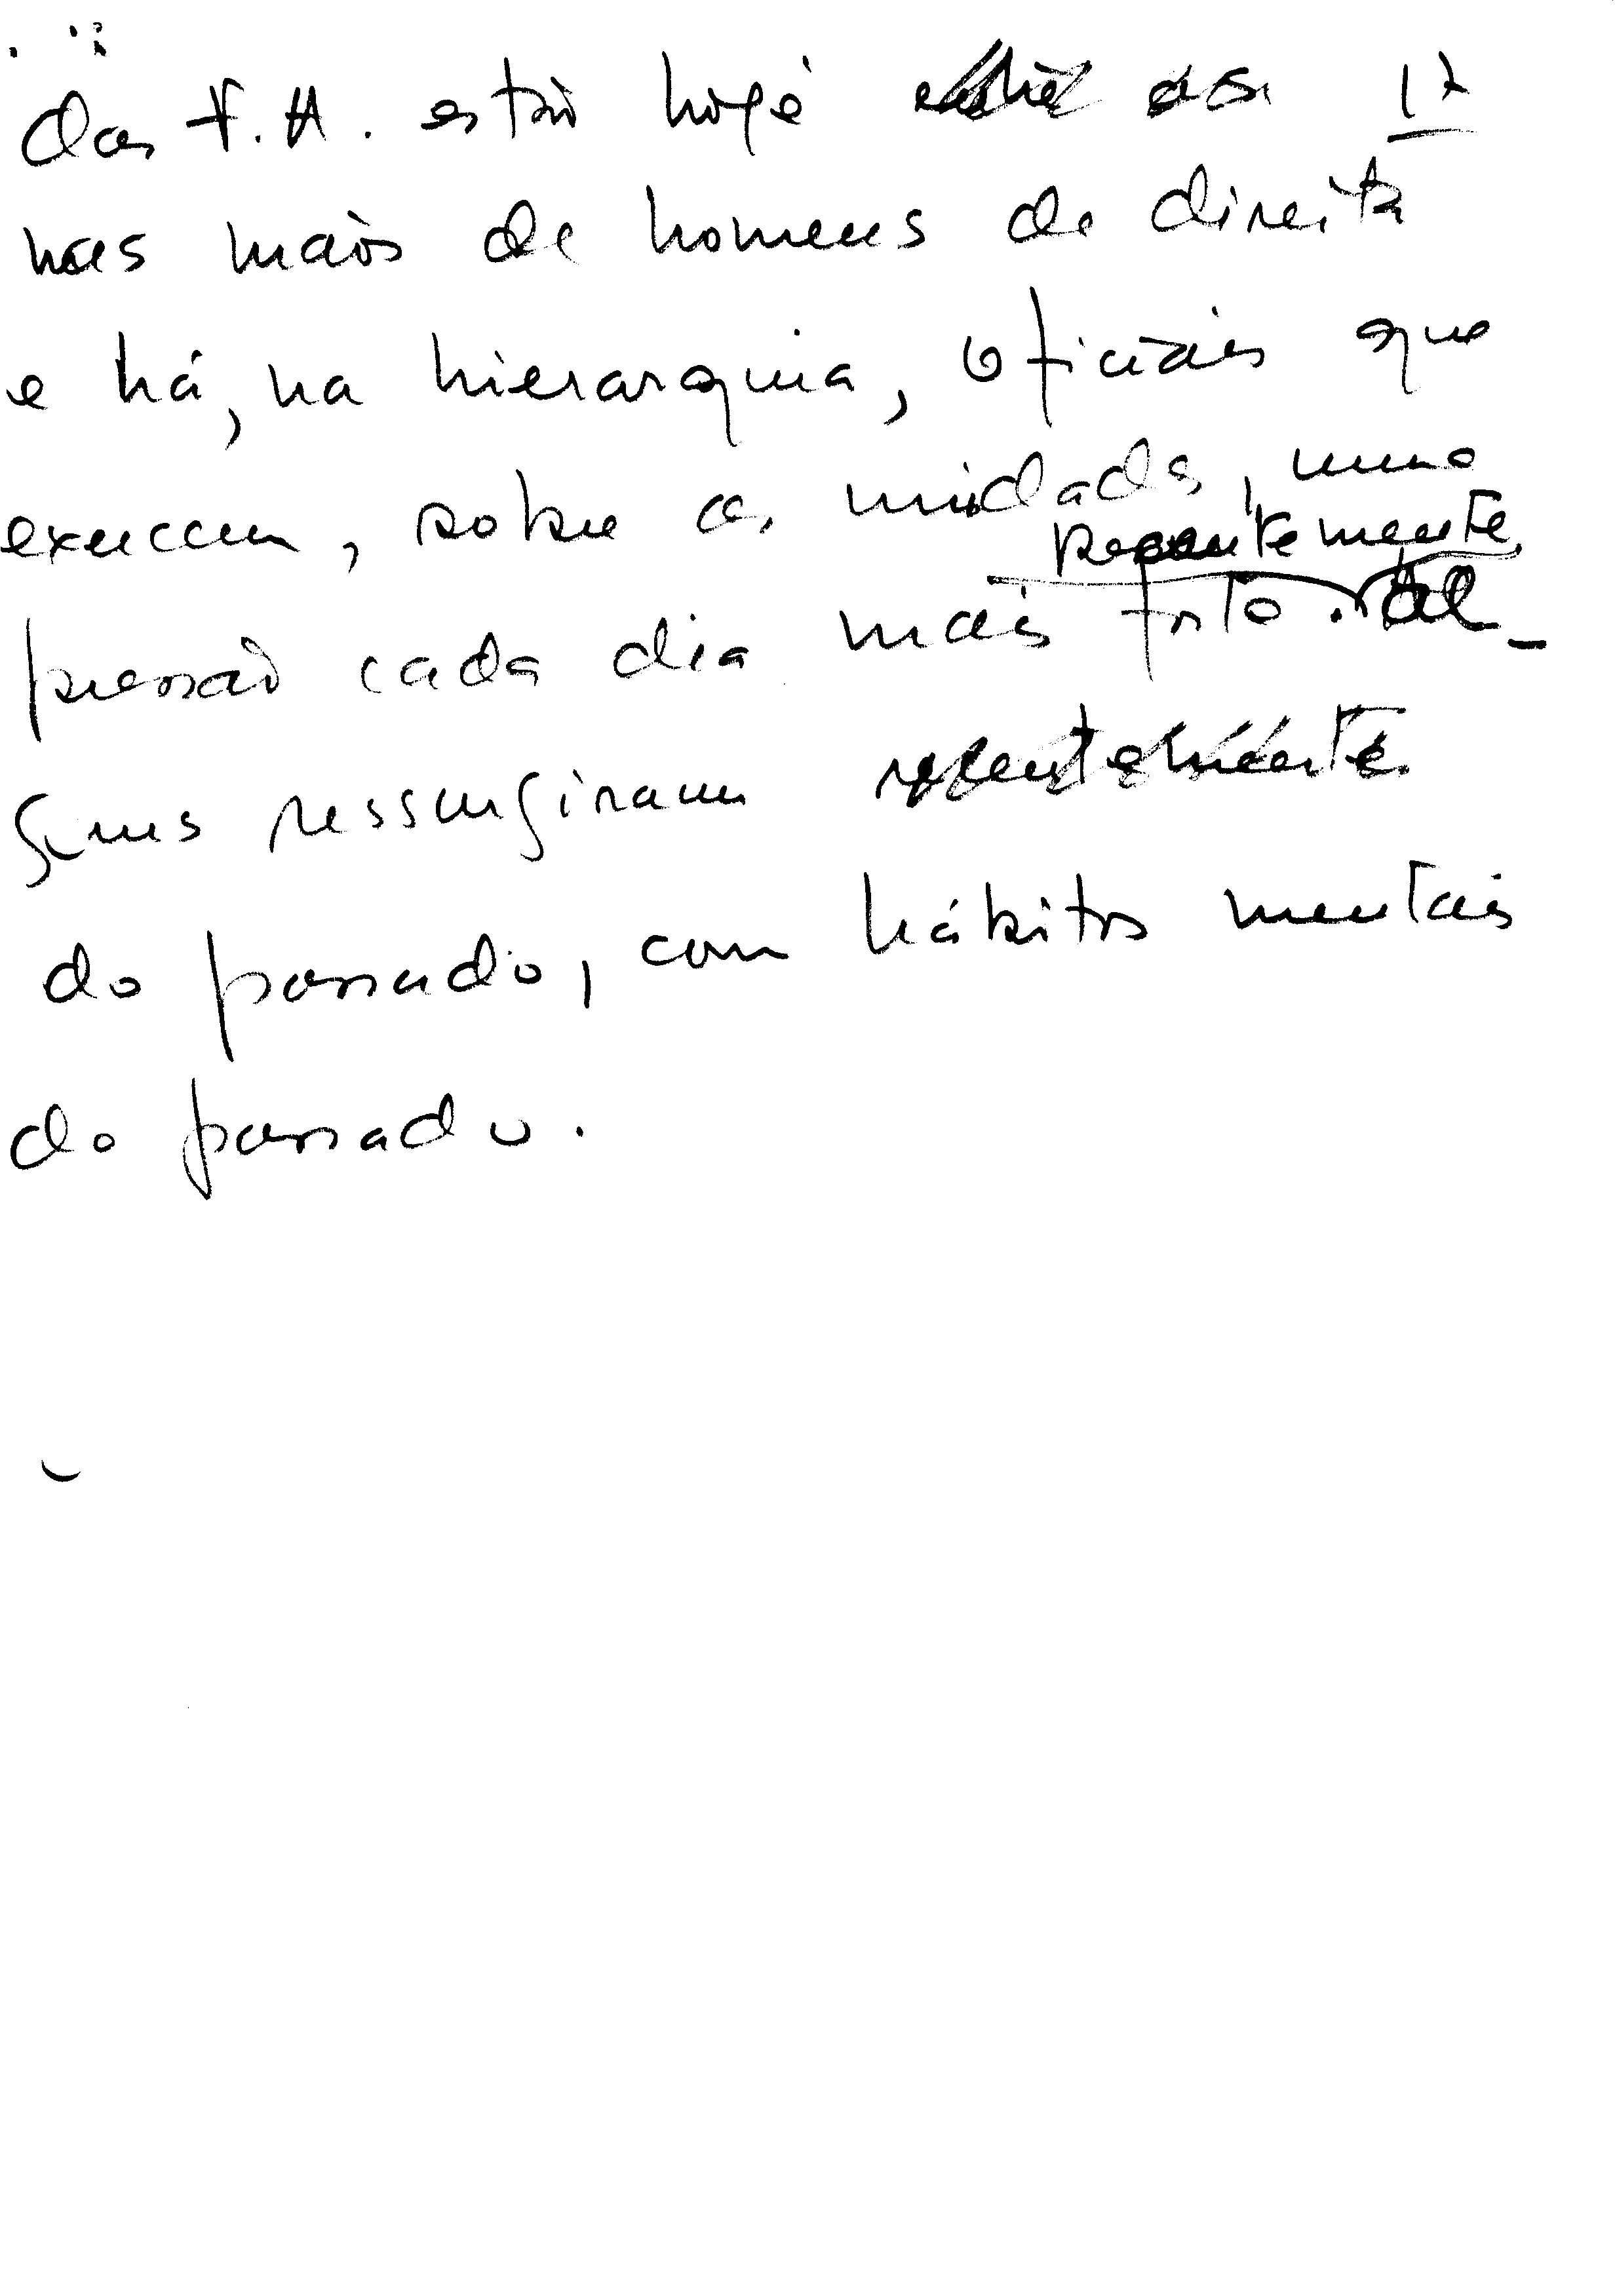 das F.A. estão hoje 17
nas mãos de homens de direita
e há, na hierarquia, oficiais que
exercem, sobre as unidades, uma
recentemente
pressão cada dia mais forte. Al-
guns ressurgiram recentemente
do passado, com hábitos mentais
do passado.